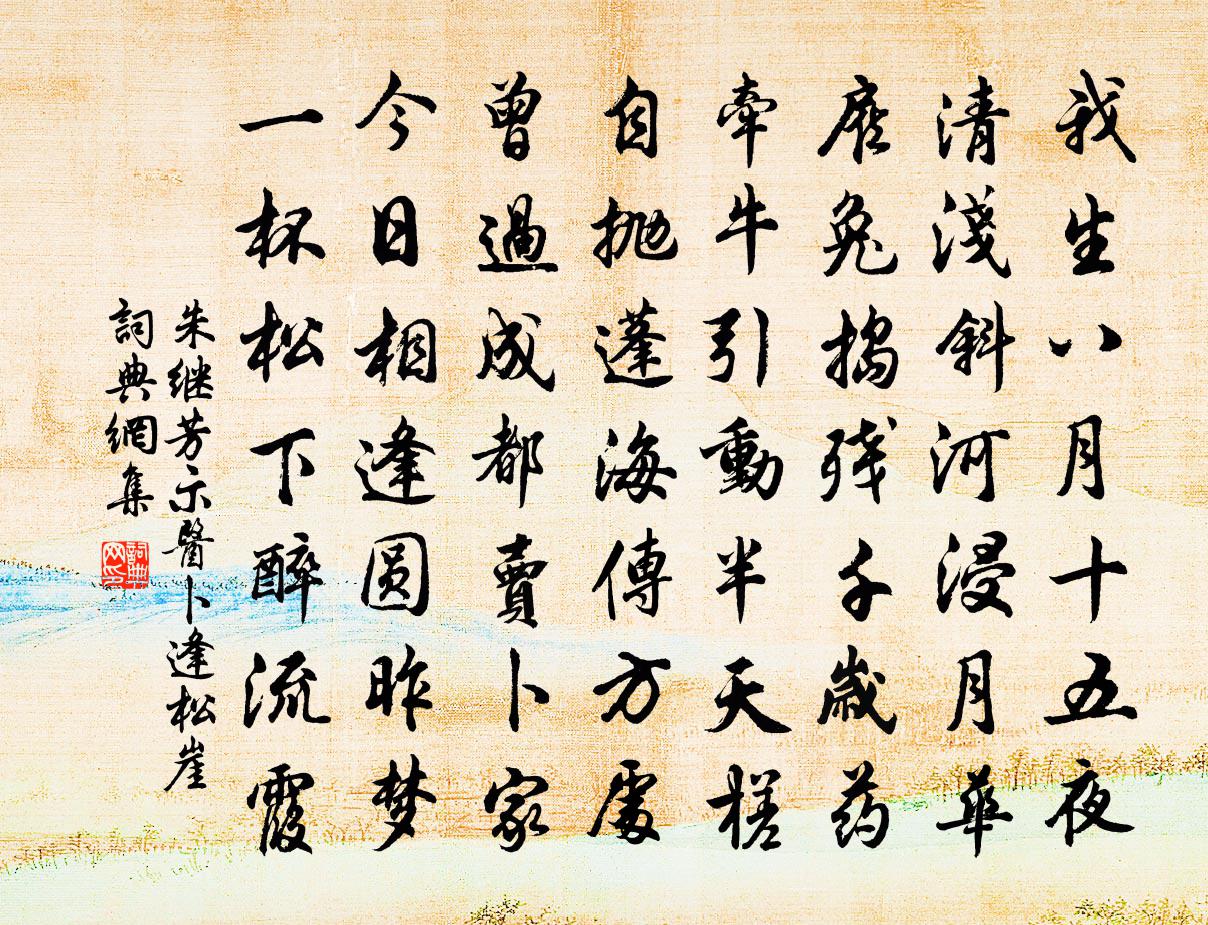 我生八月十五夜
清淺斜河浸月華
顧兔搗残千歲药
牽牛引動半天槎
自抛蓬海傳方處
曾過成都賣卜家
今日相逢圆昨梦
一杯松下醉流霞
朱继芳示醫卜逢松崖
詞典網集
詞典网印